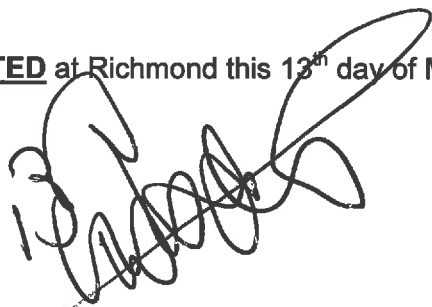 TED at Richmond this 13th day of M